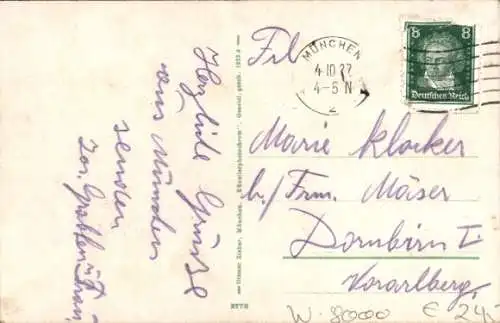 Herzliche Grüße
aus München
senden
Jos.
u. Frau
Ottmar Zieher, München. "Künstlerphotochrom". Gesetzl. gesch.
2772
MÜNCHEN
4.10.27
4-5 N
2
8 8
Deutsches Reich
Frl
Marie Klocker
b/ Frm. Mäser
Dornbirn I
Vorarlberg.
W. 8000 € 24